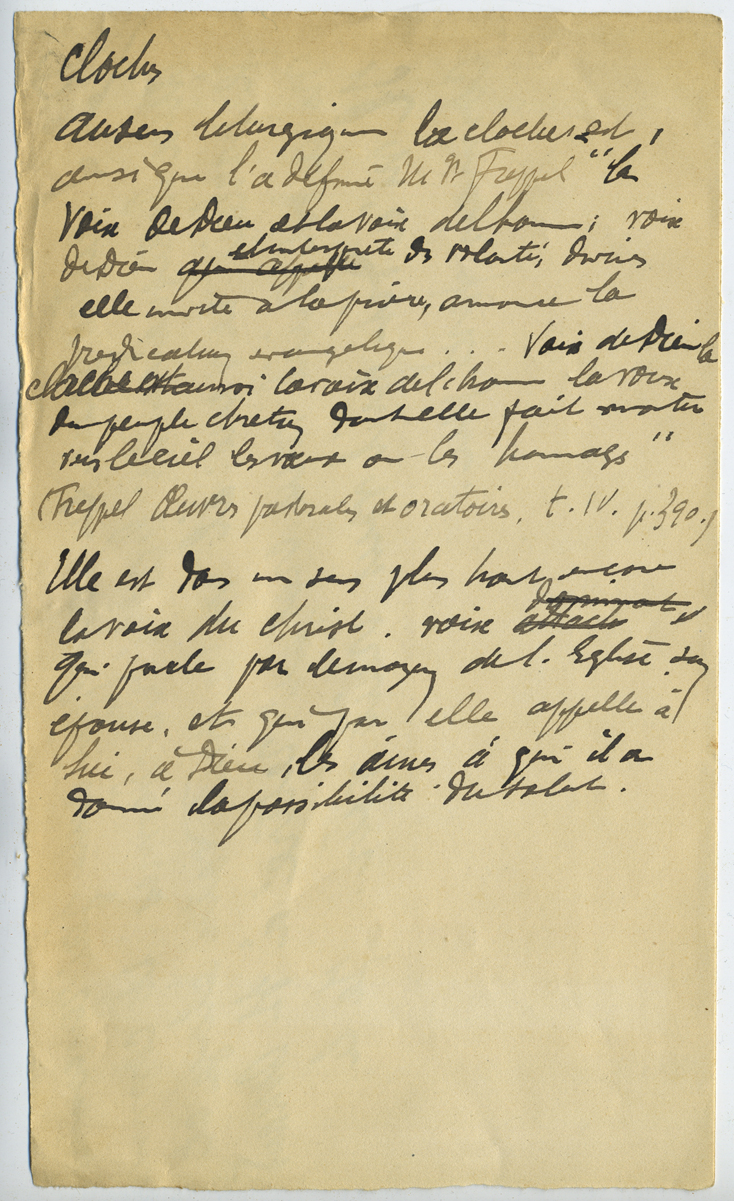 Cloches
Au sens liturgique la cloche est,
ainsi que l'a défini Mgr Freppel "la
Voix de Dieu et la voix de l'homme; voix
de Dieu et interprète de volontés divines
elle invite à la prière, annonce la
prédication évangélique . . . Voix de Dieu la
cloche est aussi la voix de l'homme la voix
du peuple chrétien dont elle fait monter
vers le ciel les vœux ou les hommages"
(Freppel Œuvres pastorales et oratoires, t. IV. p. 390.)
Elle est dans un sens plus haut encore
la voix du Christ. voix
qui parle par le moyen de l'Eglise son
épouse, et qui par elle appelle à
lui, à Dieu, les âmes à qui il a
donné la possibilité du salut.